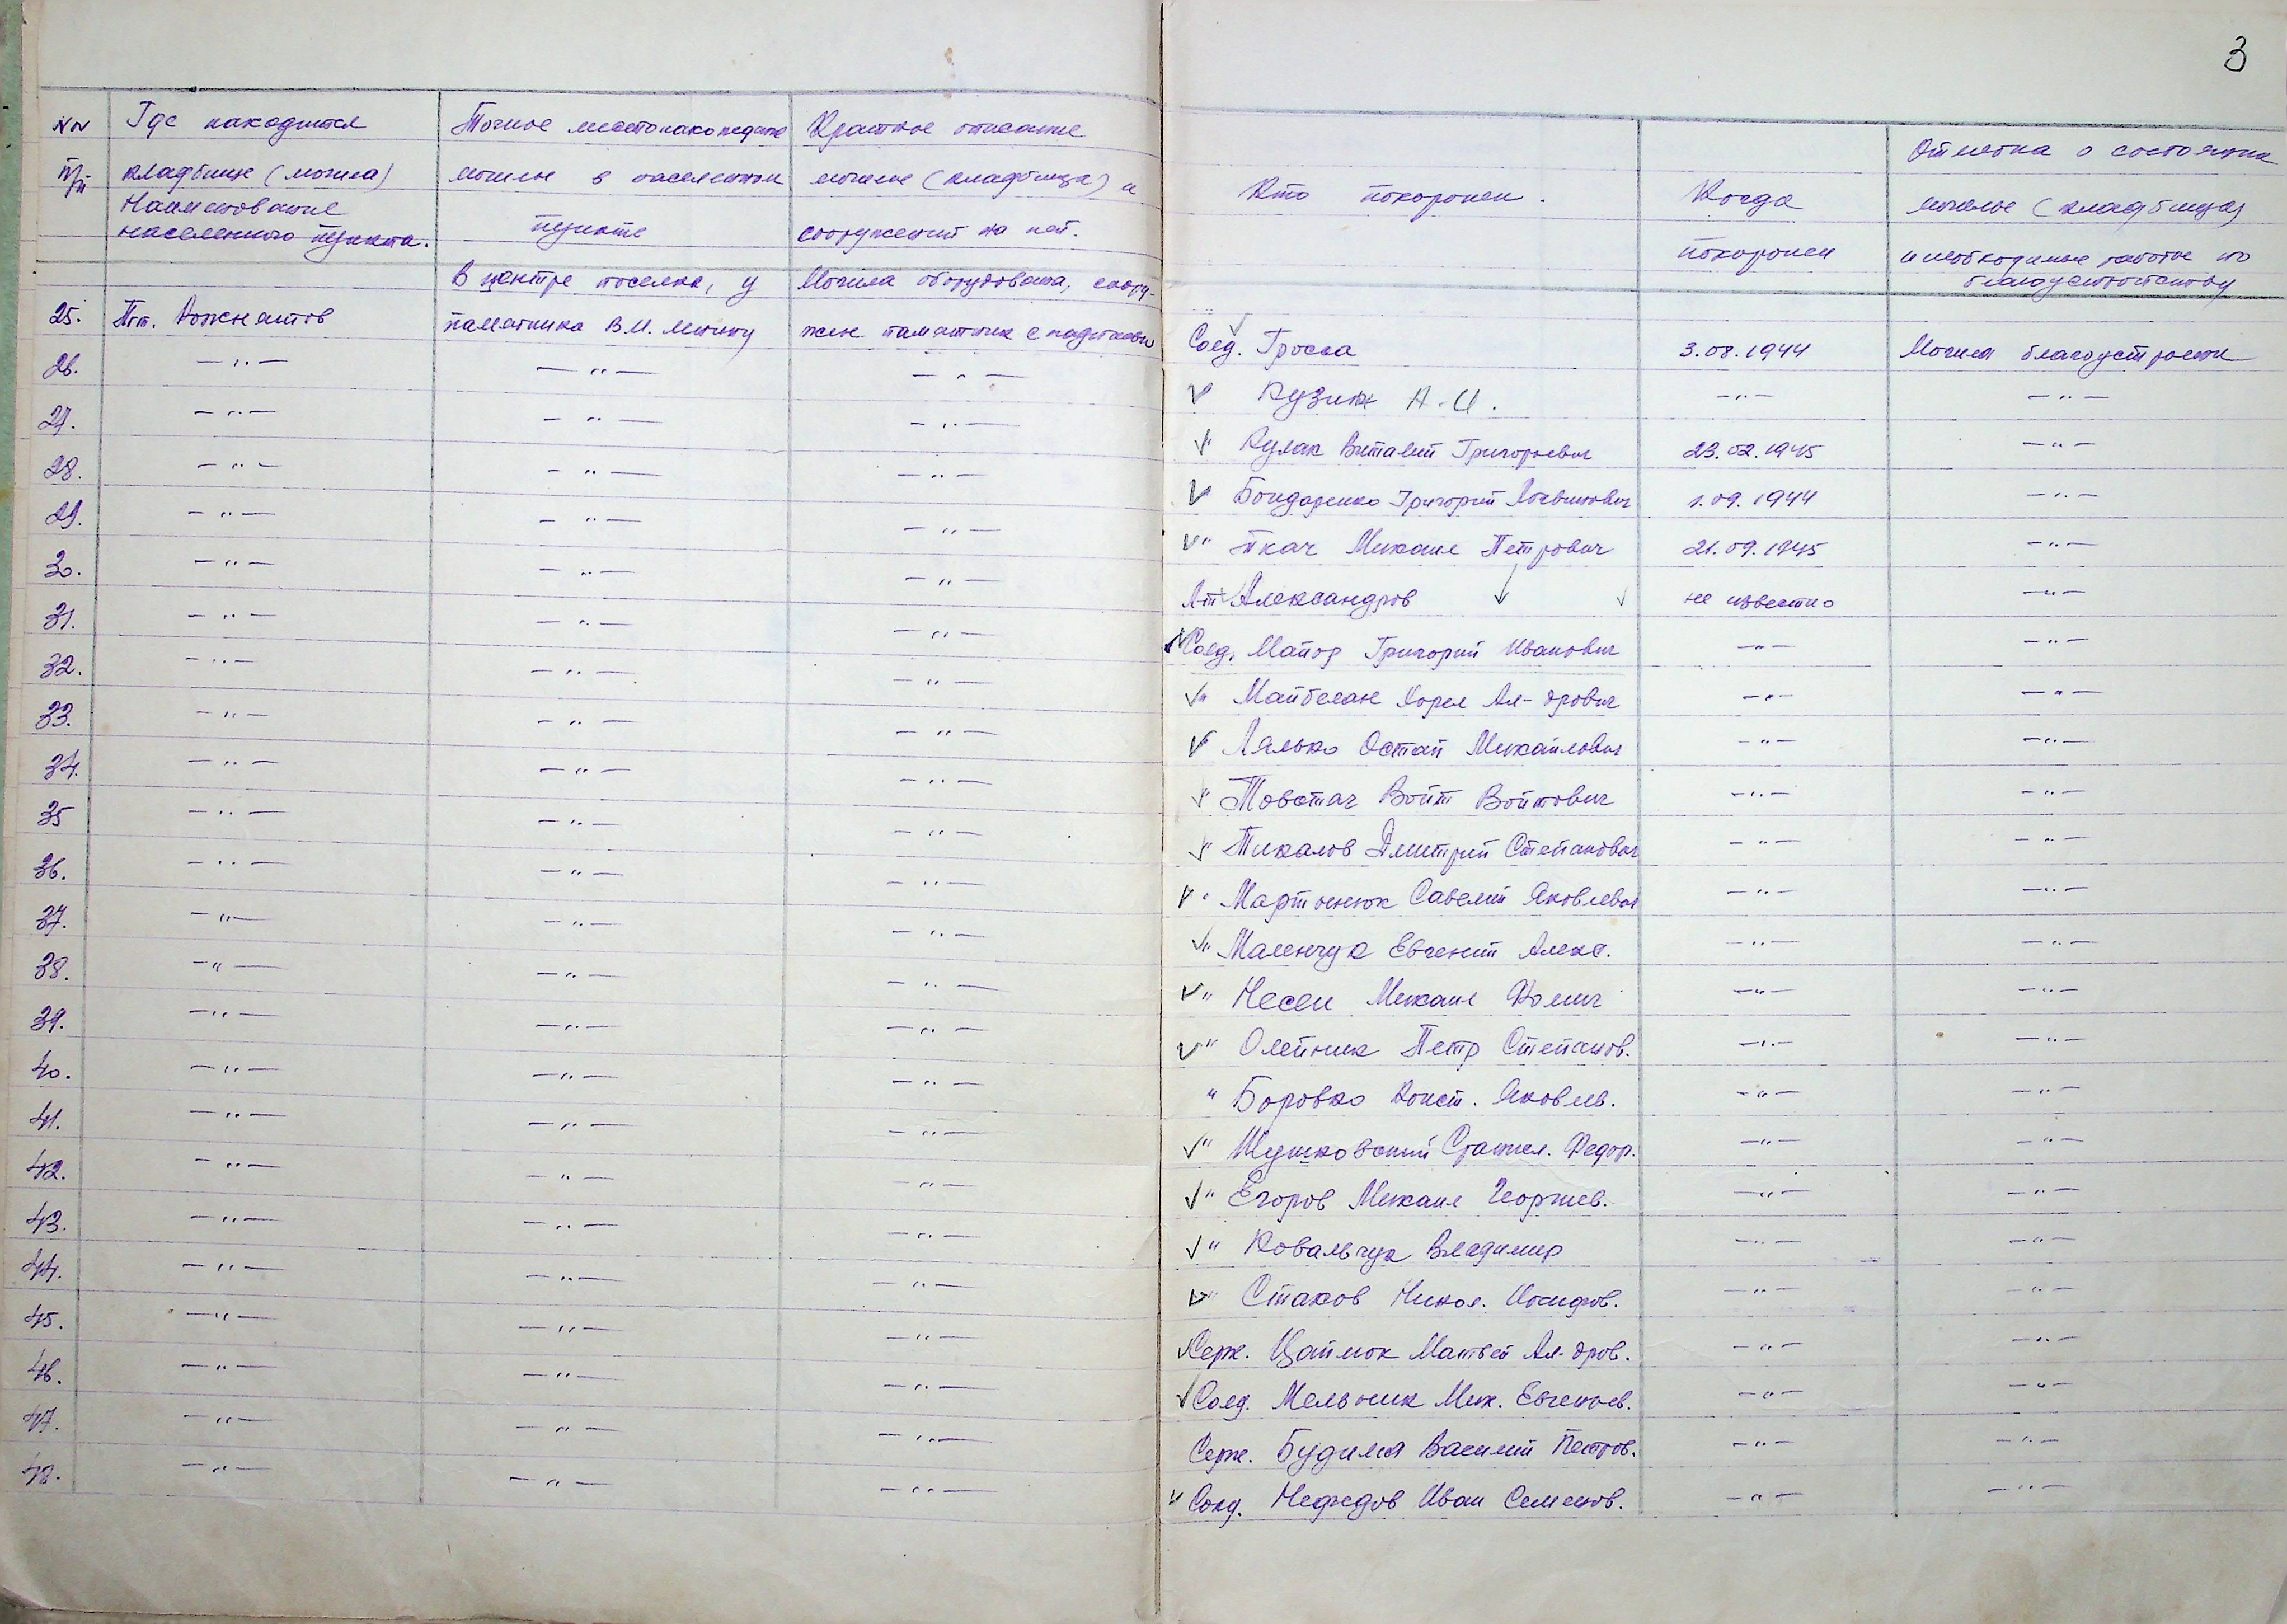 3
№№ Где находится Точное местонахождение Краткое описание
п/п кладбище (могила) могилы в населенном могилы (кладбища) и
Наименование пункте сооружений на ней.
населенного пункта.
Кто похоронен. Когда похоронен
Отметка о состоянии
могилы (кладбища)
и необходимые работы по
благоустройству
В центре поселка, у Могила оборудована, соору-
25. Пгт. Рожнятов памятника В.И. Ленину жен памятник с надписью Солд. Гроска 3.08.1944 Могила благоустроена
26. —"— —"— —"— Кузин А.И. —"— —"—
27. —"— —"— —"— " Кулик Виталий Григорьевич 23.02.1945 —"—
28. —"— —"— —"— Бондаренко Григорий 1.09.1944 —"—
29. —"— —"— —"— " Ткач Михаил Петрович 21.09.1945 —"—
30. —"— —"— —"— Л-т Александров не известно —"—
31. —"— —"— —"— Солд. Майор Григорий Иванович —"— —"—
32. —"— —"— —"— " Ал-дрович —"— —"—
33. —"— —"— —"— Лялько Остап Михайлович —"— —"—
34. —"— —"— —"— " Товстач Войт Войтович —"— —"—
35 —"— —"— —"— " Пикалов Дмитрий Степанович —"— —"—
36. —"— —"— —"— " Мартынюк Савелий Яковлевич —"— —"—
37. —"— —"— —"— " Маленчук Евгений Алекс. —"— —"—
38. —"— —"— —"— " Несен Михаил Фомич —"— —"—
39. —"— —"— —"— " Олейник Петр Степанов. —"— —"—
40. —"— —"— —"— " Боровко Конст. Яковлев. —"— —"—
41. —"— —"— —"— " Шушковский Станисл. Федор. —"— —"—
42. —"— —"— —"— " Егоров Михаил Георгиев. —"— —"—
43. —"— —"— —"— " Ковальчук Владимир —"— —"—
44. —"— —"— —"— " Стахов Никол. Иосифов. —"— —"—
45. —"— —"— —"— Серж. Цаймок Матвей Ал-дров. —"— —"—
46. —"— —"— —"— Солд. Мельник Мих. Евгеньев. —"— —"—
47. —"— —"— —"— Серж. Будиля Василий Петров. —"— —"—
48. —"— —"— —"— Солд. Нефедов Иван Семенов. —"— —"—